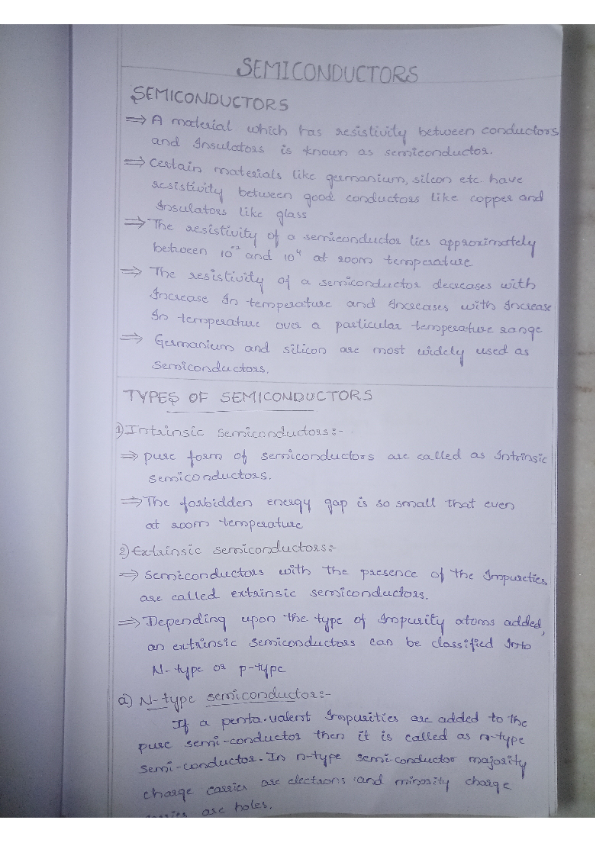 SEMICONDUCTORS
SEMICONDUCTORS
⇒ A material which has resistivity between conductors
and Insulators is known as semiconductor.
⇒ certain materials like germanium, silcon etc. have
resistivity between good conductors like copper and
Insulators like glass
⇒ The resistivity of a semiconductor lies approximately
between 10⁻² and 10⁴ at room temperature
⇒ The resistivity of a semiconductor decreases with
Increase In temperature and Increases with Increase
In temperature over a particular temperature range
⇒ Germanium and silicon are most widely used as
Semiconductors.
TYPES OF SEMICONDUCTORS
1) Intrinsic semiconductors:-
⇒ pure form of semiconductors are called as Intrinsic
semiconductors.
⇒ The forbidden energy gap is so small that even
at room temperature
2) Extrinsic semiconductors:-
⇒ semiconductors with the presence of the Impureties
are called extrinsic semiconductors.
⇒ Depending upon the type of Impurity atoms added,
an extrinsic semiconductors can be classified Into
N-type or p-type
a) N-type semiconductor:-
If a penta.valent Impurities are added to the
pure semi-conductor then it is called as n-type
semi-conductor. In n-type semi-conductor majority
charge carries are electrons and minority charge
are holes.